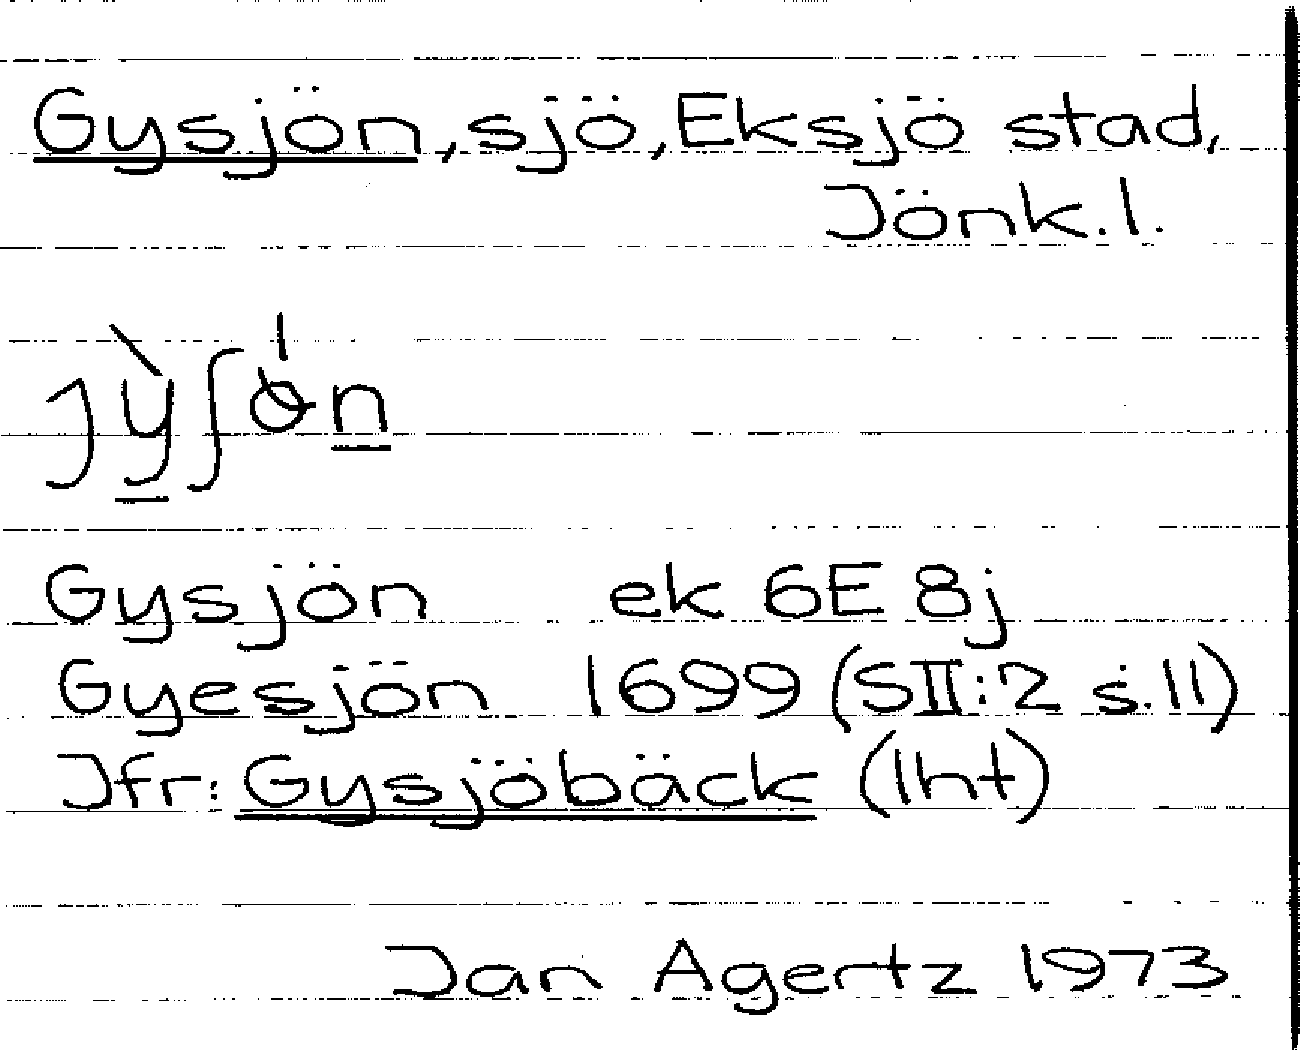 Gysjön, sjö, Eksjö stad,
Jönk.l.
Gysjön ek 6E 8j
Gyesjön 1699 (SII:2 s.11)
Jfr: Gysjöbäck (lht)
Jan Agertz 1973